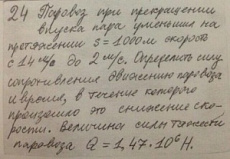 24 Паровоз при прекращении
впуска пара уменшил на
протяжении S=1000м скорость
с 14 м/с до 2 м/с. Определить силу
сопротивления движению паровоза
и время, в течение которого
произошло это снижение ско-
рости. Величина силы тяжести
паровоза Q = 1,47·10⁶ Н.